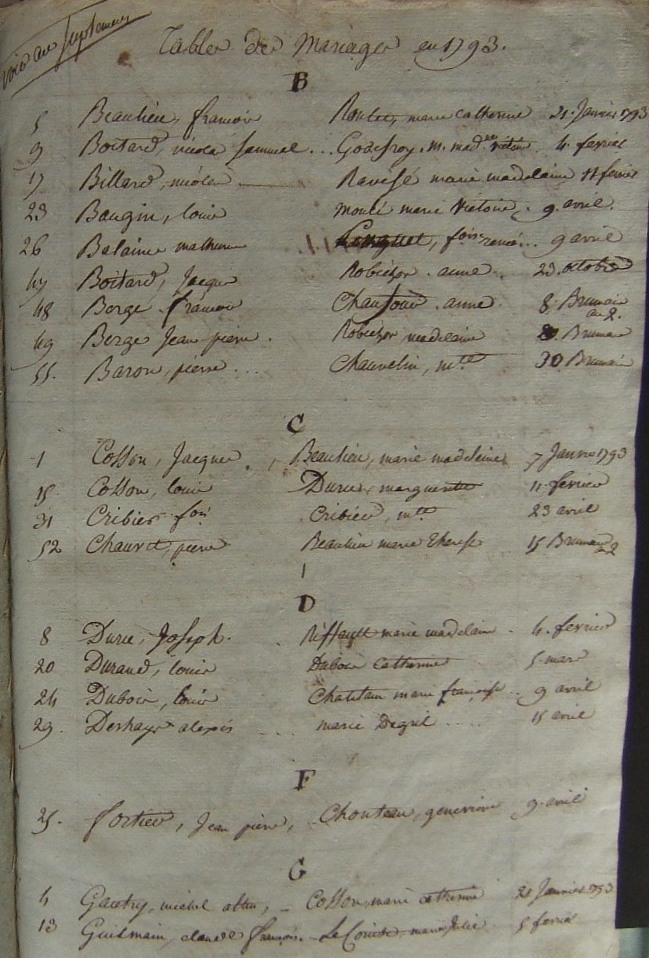 Voir au supplement
Table de Mariages en 1793.
B
5 Beaulieu, francois Roulet, marie catherine 21 Janvier 1793
9 Boitard, nicolas samuel... Godefroy. M. mad. 4 fevrier
17 Billard, nicolas Ravesé marie madelaine 11 fevrier
23 Baugin, louis Moulé marie Victoire, 9 avril.
26 Balaine mathurin 9 avril
47 Boitard, Jacques Robichon anne. 23 octobre
48 Berge francois Chaufour anne 8 Brumaire
an 2.
49 Berge Jean pierre. Robichon madelaine Brumaire
55. Baron, pierre... Chauvelin, mte 30 Brumaire
C
1 Cosson, Jacques, Beaulieu, marie madeleine 7 Janvier 1793
15 Cosson, louis Durie, marguerite 11 fevrier
31 Cribier fois Cribier, mte 23 avril
52 Chauvet, pierre Beaulieu marie Therese 15 Brumaire an 2
D
8 Durie, Joseph. Riffault marie madelaine. 4 fevrier
20 Durand, louis Dabout catherine 5 mars
24 Dubois, louis Chatelain marie françoise.. 9 avril
29. Deshayes alexis marie Degril.... 15 avril
F
25. fortier, Jean pierre, Chouteau, genevieve 9 avril
G
4 Gautry, michel, - Cosson, marie catherine 21 Janvier 1793
13 Guilmain, claude françois. Le Comte, marie Julie 5 fevrier